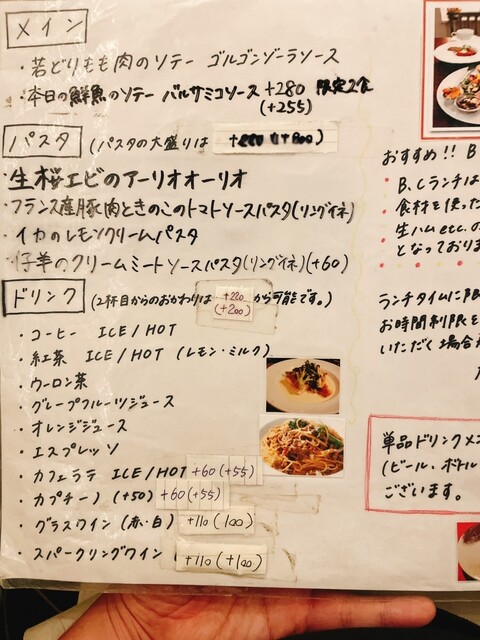 メイン
・若どりもも肉のソテー ゴルゴンゾーラソース
・本日の鮮魚のソテー バルサミコソース +280 限定2食
(+255)
パスタ (パスタの大盛りは
・生桜エビのアーリオオーリオ
・フランス産豚肉ときのこのトマトソースパスタ(リングイネ)
・イカのレモンクリームパスタ
・仔羊のクリームミートソースパスタ(リングイネ)(+60)
ドリンク (2杯目からのおかわりは +220 から可能です。)
(+200)
・コーヒー ICE/HOT
・紅茶 ICE/HOT (レモン・ミルク)
・ウーロン茶
・グレープフルーツジュース
・オレンジジュース
・エスプレッソ
・カフェラテ ICE/HOT +60(+55)
・カプチーノ (+50) +60(+55)
・グラスワイン (赤・白) +110(100)
・スパークリングワイン ( +110(+100)
おすすめ!! B
• B,Cランチは
• 食材を使った
• 生ハムetc.の
• となっておりま
ランチタイムに限
お時間制限を
いただく場合
単品ドリンクメニ
(ビール・ボトル
ございます。